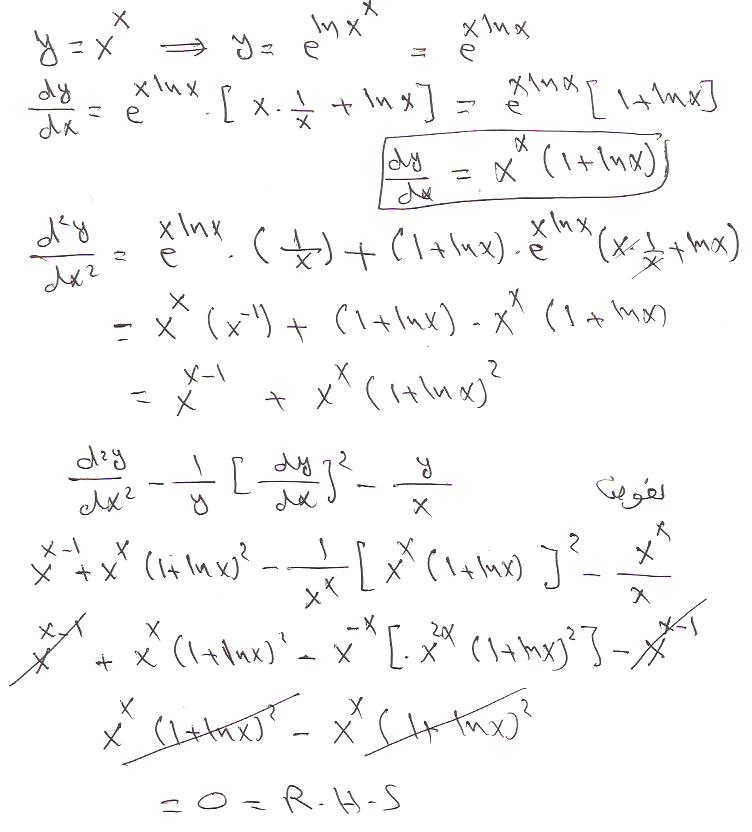 y = x^x ⟹ y = e^{ln x^x} = e^{x ln x}
dy/dx = e^{x ln x} · [ x · 1/x + ln x ] = e^{x ln x} [ 1 + ln x ]
dy/dx = x^x (1 + ln x)
d²y/dx² = e^{x ln x} · (1/x) + (1 + ln x) · e^{x ln x} (x · 1/x + ln x)
= x^x (x^{-1}) + (1 + ln x) · x^x (1 + ln x)
= x^{x-1} + x^x (1 + ln x)²
d²y/dx² - 1/y [dy/dx]² - y/x تعويض
x^{x-1} + x^x (1 + ln x)² - 1/x^x [ x^x (1 + ln x) ]² - x^x/x
x^{x-1} + x^x (1 + ln x)² - x^{-x} [ · x^{2x} (1 + ln x)² ] - x^{x-1}
x^x (1 + ln x)² - x^x (1 + ln x)²
= 0 = R.H.S